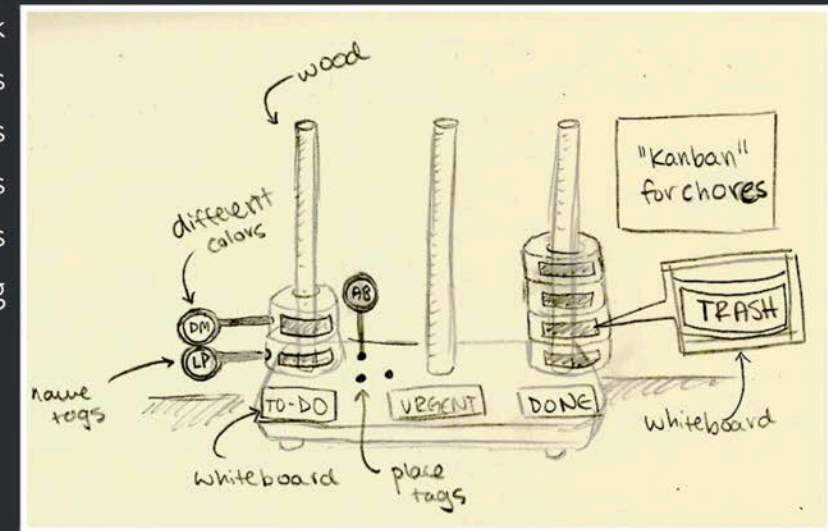 k
s
s
s
s
g
wood
"Kanban"
for chores
different
colors
AB
DM
LP
TRASH
name
tags
TO-DO
URGENT
DONE
whiteboard
whiteboard
place
tags